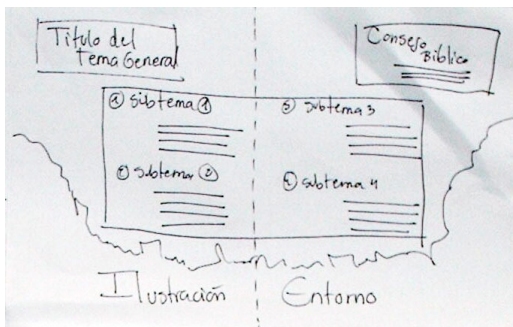 Título del
Tema General
Consejo
Bíblico
① Subtema ①
② Subtema ②
③ Subtema 3
④ Subtema 4
Ilustración
Entorno